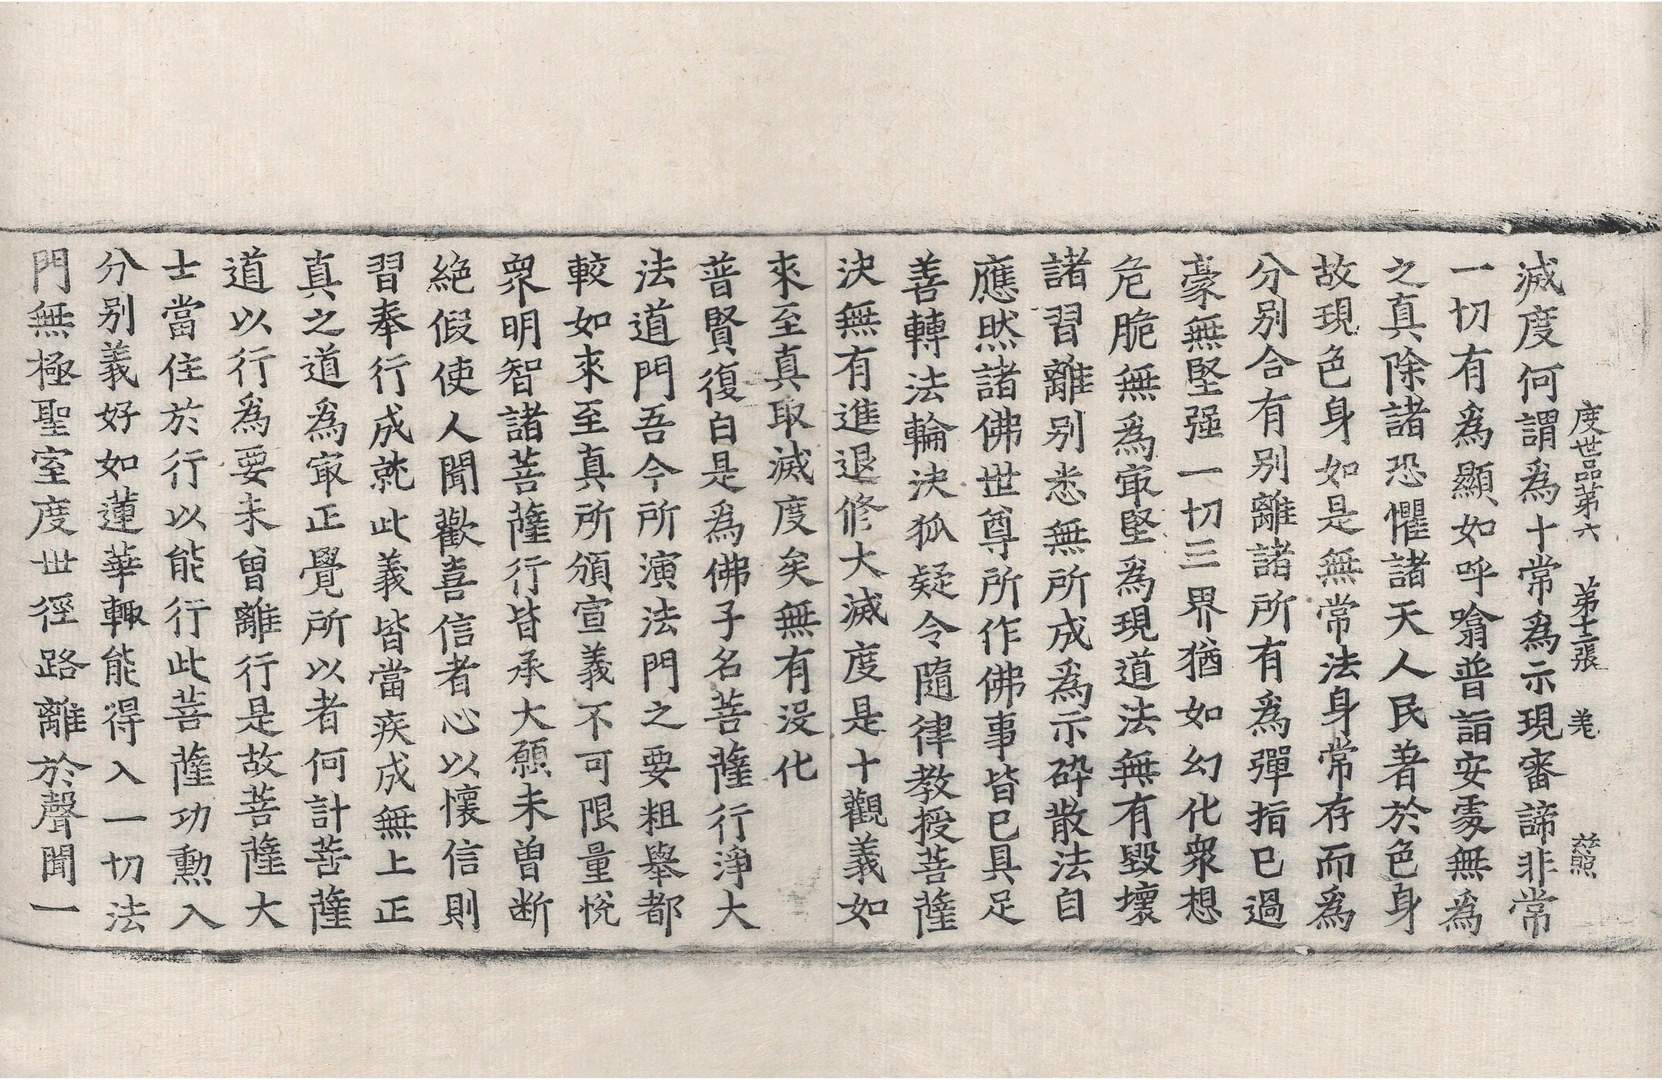 度世品第六　第十二張　羌　慈照
滅度何謂爲十常爲示現審諦非常
一切有爲顯如呼噏普詣安處無爲
之真除諸恐懼諸天人民著於色身
故現色身如是無常法身常存而爲
分别合有别離諸所有爲彈指已過
豪無堅强一切三界猶如幻化衆想
危脆無爲㝡堅爲現道法無有毀壞
諸習離别悉無所成爲示碎散法自
應然諸佛世尊所作佛事皆已具足
善轉法輪決狐疑令隨律教授菩薩
決無有進退修大滅度是十觀義如
來至真取滅度矣無有没化
普賢復白是爲佛子名菩薩行淨大
法道門吾今所演法門之要粗舉都
較如來至真所頒宣義不可限量恱
衆明智諸菩薩行皆承大願未曾断
絶假使人聞歡喜信者心以懷信則
習奉行成就此義皆當疾成無上正
真之道爲㝡正覺所以者何計菩薩
道以行爲要未曾離行是故菩薩大
士當住於行以能行此菩薩功勲入
分别義好如蓮華輙能得入一切法
門無極聖室度世徑路離於聲聞一